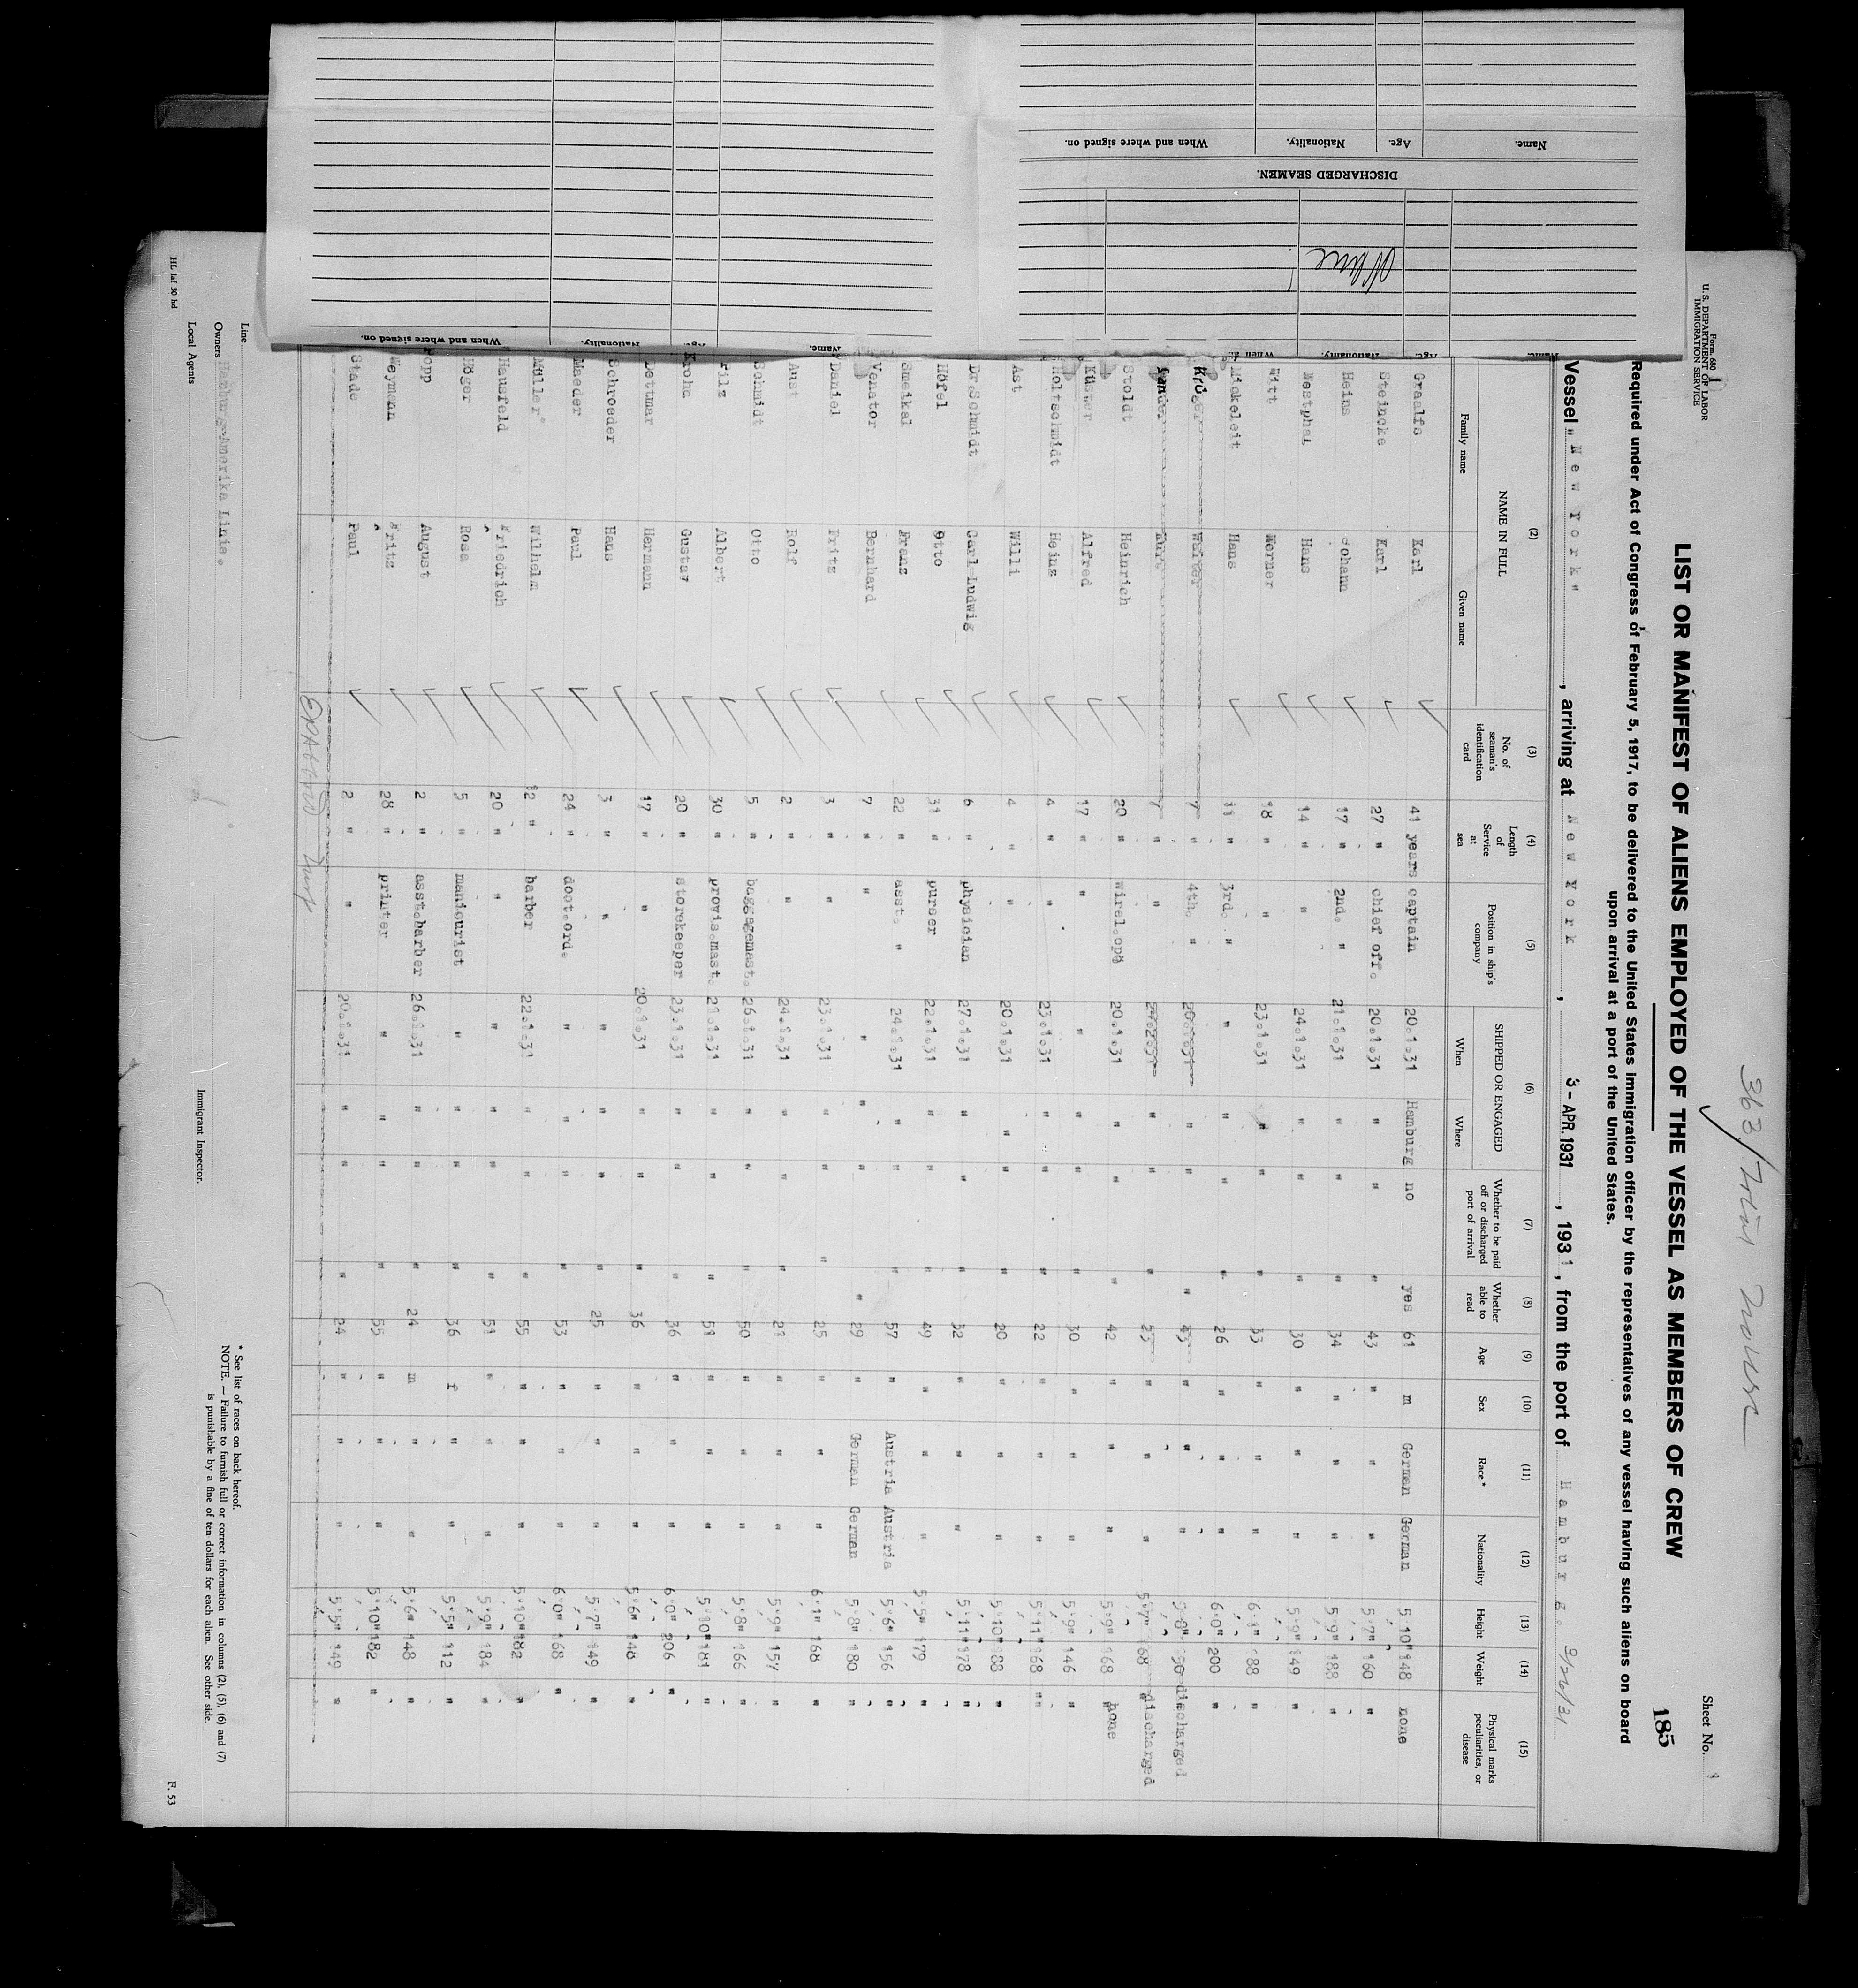 Form 680
U. S. DEPARTMENT OF LABOR
IMMIGRATION SERVICE
Sheet No. 1
185
LIST OR MANIFEST OF ALIENS EMPLOYED OF THE VESSEL AS MEMBERS OF CREW
Required under Act of Congress of February 5, 1917, to be delivered to the United States immigration officer by the representatives of any vessel having such aliens on board
upon arrival at a port of the United States.
Vessel "New York", arriving at New York, 3- APR. 1931, 1931, from the port of Hamburg. 3/26/31
(2) (3) (4) (5) (6) (7) (8) (9) (10) (11) (12) (13) (14) (15)
NAME IN FULL No. of seaman's identification card Length of Service at sea Position in ship's company SHIPPED OR ENGAGED Whether to be paid off or discharged port of arrival Whether able to read Age Sex Race* Nationality Height Weight Physical marks peculiarities, or disease
Family name Given name When Where
Graalfs Karl 41 years captain 20.1.31 Hamburg no yes 61 m German German 5'10" 148 none
Steincke Karl 27 " chief off. 20.1.31 " " " 43 " " " 5'7" 160 "
Heins Johann 17 " 2nd. " 21.1.31 " " " 34 " " " 5'9" 188 "
Westphal Hans 14 " " 24.1.31 " " " 30 " " " 5'9" 149 "
Witt Werner 18 " " 23.1.31 " " " 33 " " " 6'1" 188 "
Mickeleit Hans 11 " 3rd. " " " " " 26 " " " 6'0" 200 "
Krüger Walter 7 " 4th. " 20.1.31 " " " 23 " " " discharged
Kurt 7 " " " " " 23 " " " 5'7" 168 discharged
Stoldt Heinrich 20 " wirel.op 20.1.31 " " " 42 " " " 5'9" 168 none
Küster Alfred 17 " " " " " " 30 " " " 5'9" 146 "
Holtschmidt Heinz 4 " " 23.1.31 " " " 22 " " " 5'11" 168 "
Ast Willi 4 " " 20.1.31 " " " 20 " " " 5'10" 188 "
Dr.Schmidt Carl-Ludwig 6 " physician 27.1.31 " " " 32 " " " 5'11" 178 "
Höfel Otto 31 " purser 22.1.31 " " " 49 " " " 5'5" 179 "
Smeikal Franz 22 " asst. " 24.1.31 " " " 57 " Austria Austria 5'6" 156 "
Venator Bernhard 7 " " " " " " 29 " German German 5'8" 180 "
Daniel Fritz 3 " " 23.1.31 " " " 25 " " " 6'1" 168 "
Aust Rolf 2 " " 24.1.31 " " " 21 " " " 5'9" 157 "
Schmidt Otto 5 " baggagemast. 26.1.31 " " " 50 " " " 5'8" 166 "
Pilz Albert 30 " provis.mast. 21.1.31 " " " 51 " " " 5'10" 181 "
Krohn Gustav 20 " storekeeper 23.1.31 " " " 36 " " " 6'0" 206 "
Dettmar Hermann 17 " " 20.1.31 " " " 36 " " " 5'6" 148 "
Schroeder Hans 3 " " " " " " 25 " " " 5'7" 149 "
Maeder Paul 24 " deot.ord. " " " " 53 " " " 6'0" 168 "
Müller Wilhelm 12 " barber 22.1.31 " " " 55 " " " 5'10" 182 "
Hausfeld Friedrich 20 " " " " " " 51 " " " 5'9" 184 "
Höger Rosa 5 " manicurist " " " " 36 f " " 5'5" 112 "
Popp August 2 " asst.barber 26.1.31 " " " 24 m " " 5'6" 148 "
Weymann Fritz 28 " printer " " " " 55 " " " 5'10" 182 "
Stade Paul 2 " " 20.1.31 " " " 24 " " " 5'5" 149 "
Line
Owners Hamburg-Amerika Linie.
Local Agents
Immigrant Inspector.
* See list of races on back hereof.
NOTE. — Failure to furnish full or correct information in columns (2), (5), (6) and (7)
is punishable by a fine of ten dollars for each alien. See other side.
HL laf 30 hd
F. 53
DISCHARGED SEAMEN.
Name. Age. Nationality. When and where signed on.
None
Name. Age. Nationality. When and where signed on.